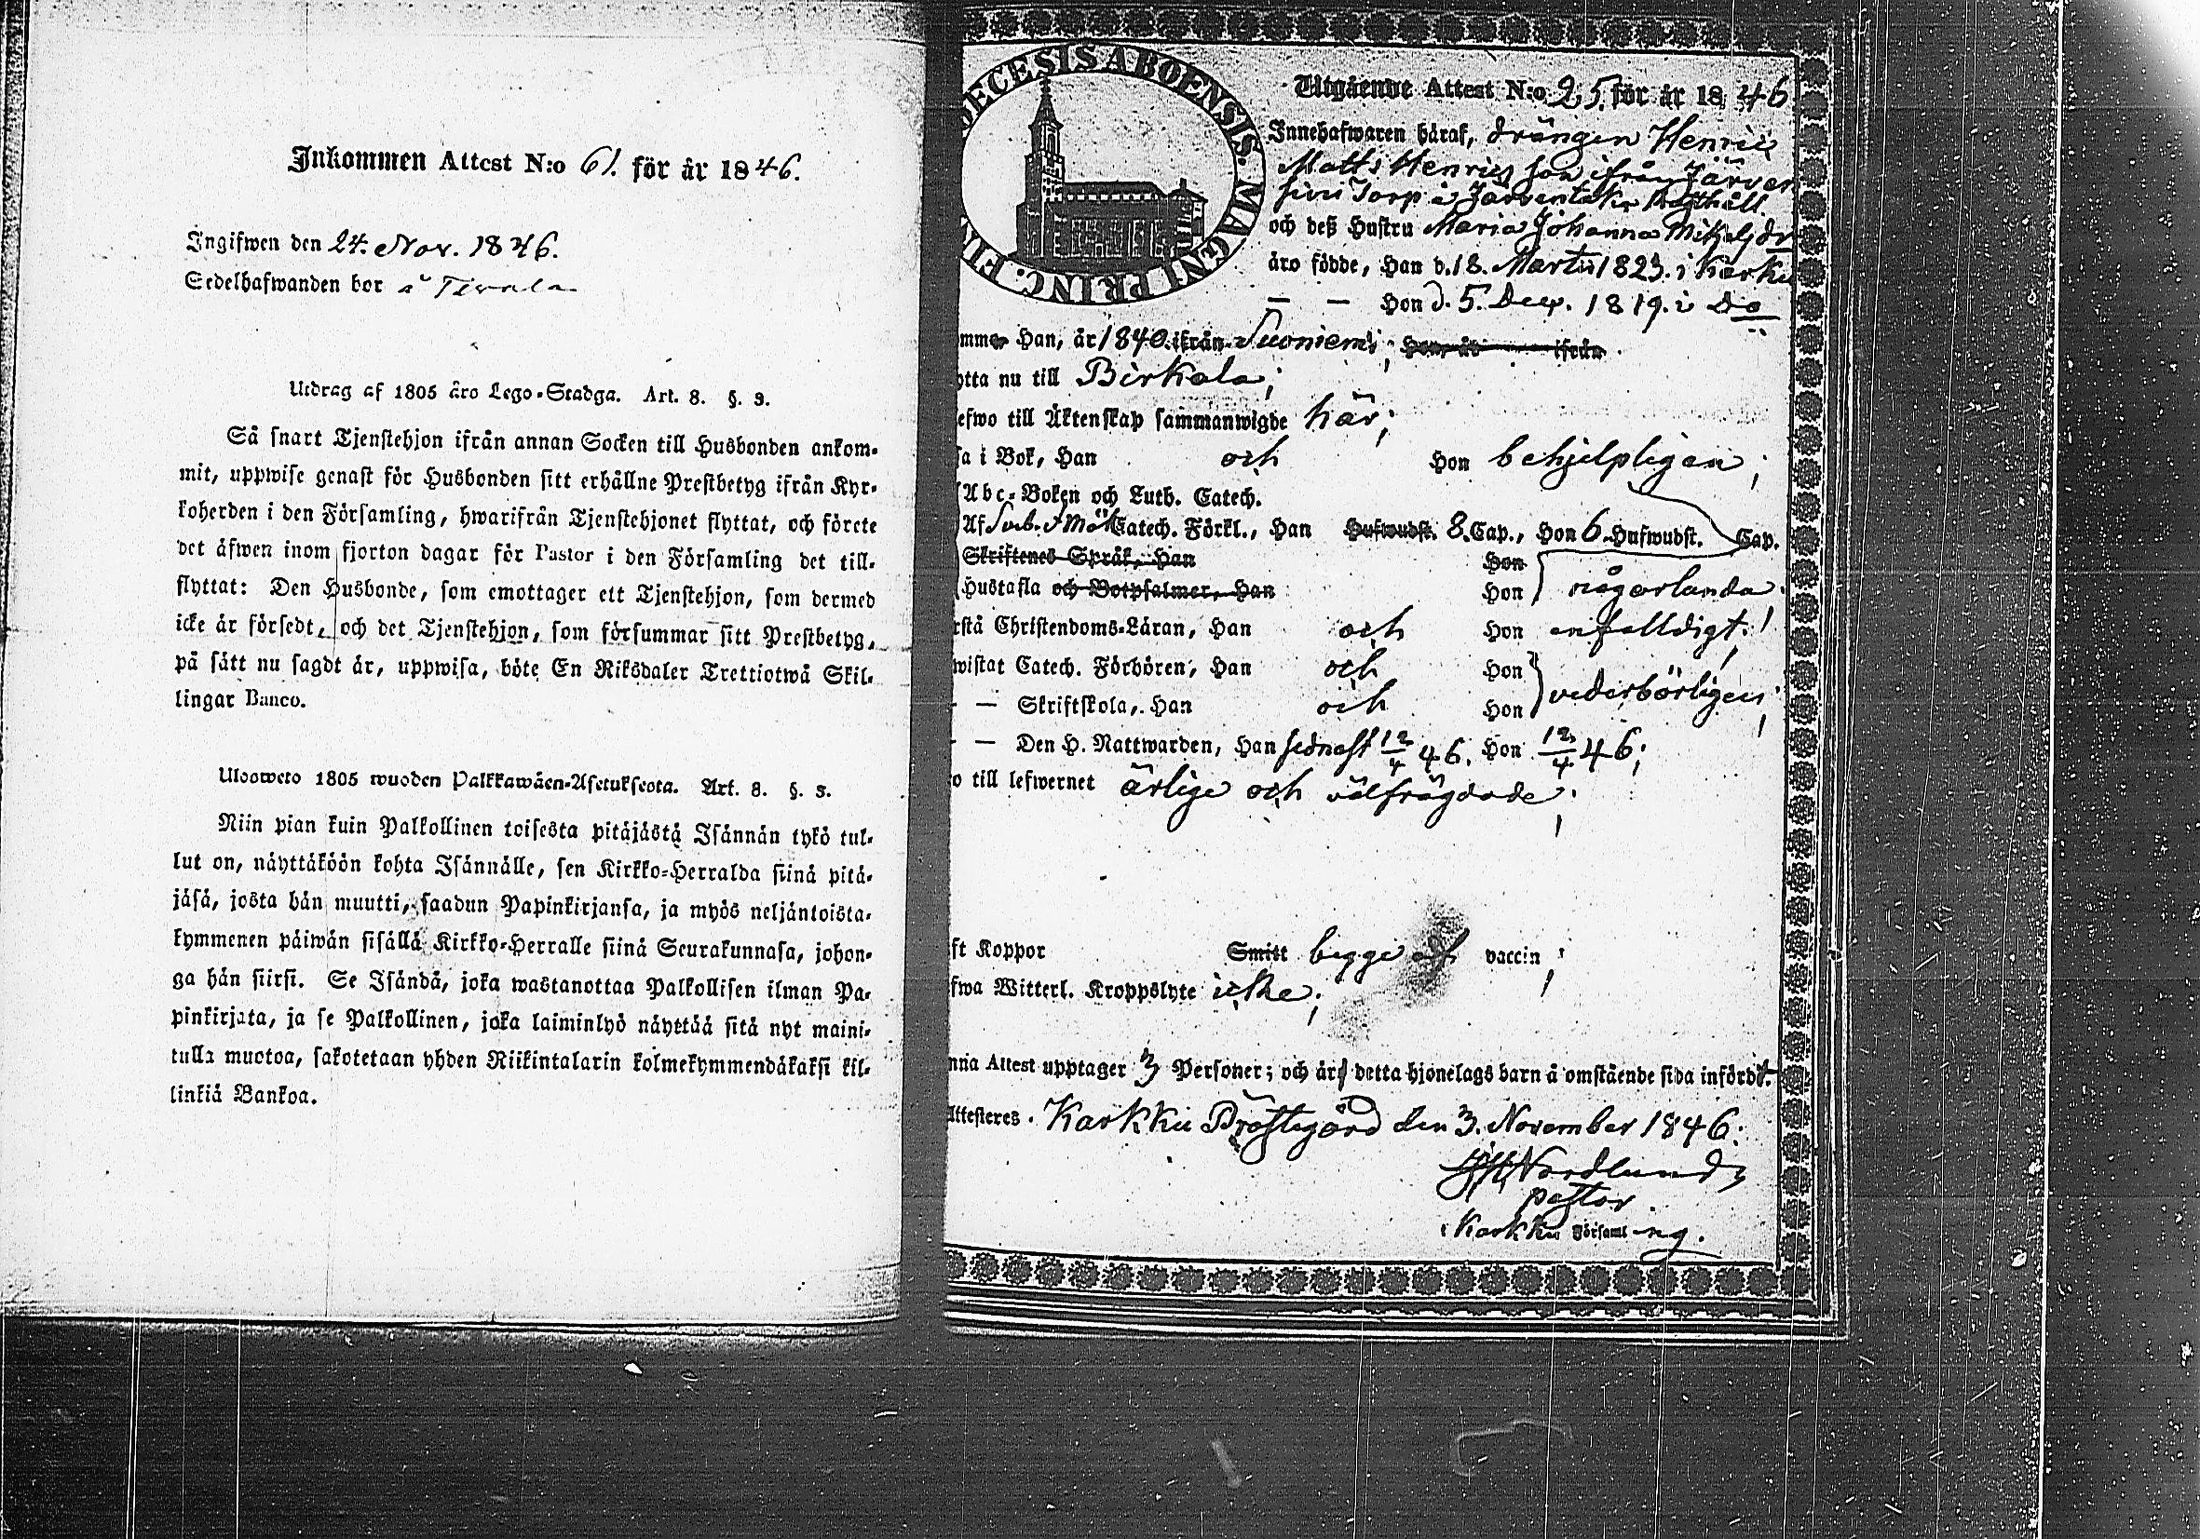 Inkommen Attest N:o 61. för år 1846.
Ingifwen den 24. Nov. 1846.
Sedelhafwanden bor å
Utdrag af 1805 åro Lego-Stadga. Art. 8. §. 3.
Så snart Tjenstehjon ifrån annan Socken till Husbonden ankom-
mit, uppwise genast för Husbonden sitt erhållne Prestbetyg ifrån Kyr-
koherden i den Församling, hwarifrån Tjenstehjonet flyttat, och förete
det äfwen inom fjorton dagar för Pastor i den Församling det till-
flyttat: Den Husbonde, som emottager ett Tjenstehjon, som dermed
icke är försedt, och det Tjenstehjon, som försummar sitt Prestbetyg,
på sätt nu sagdt är, uppwisa, böte En Riksdaler Trettiotwå Skil-
lingar Banco.
Ulosweto 1805 wuoden Palkkawäen-Asetuksesta. Art. 8. §. 3.
Niin pian kuin Palkollinen toisesta pitäjästä Isännän tykö tul-
lut on, näyttäköön kohta Isännälle, sen Kirkko-Herralda siinä pitä-
jäsä, josta hän muutti, saadun Papinkirjansa, ja myös neljäntoista-
kymmenen päiwän sisällä Kirkko-Herralle siinä Seurakunnasa, johon-
ga hän siirsi. Se Isändä, joka wastanottaa Palkollisen ilman Pa-
pinkirjata, ja se Palkollinen, joka laiminlyö näyttää sitä nyt maini-
tulla muotoa, sakotetaan yhden Riikintalarin kolmekymmendäkaksi kil-
linkiä Bankoa.
DECESIS ABOENSIS. MAGNI PRINC. FIN
Utgående Attest N:o 25. för år 1846
Innehafwaren häraf, drängen Henric
Matts Henricsson ifrån Järven
sivu Torp å Järventaka Rusthåll
och deß Hustru Maria Johanna Mikelsdr
äro födde, Han d. 18. Martii 1823. i Karku
— — Hon d. 5. Decr. 1819. i Do
mmer Han, år 1840. ifrån Suoniemi; Hon, år ifrån
otta nu till Birkala;
efwo till Äktenskap sammanwigde här;
sa i Bok, Han och Hon behjelpligen;
Abc-Boken och Luth. Catech.
Af Sveb. Catech. Förkl., Han Hufwudst. 8. Cap., Hon 6. Hufwudst. Cap.
Skriftenes Språk, Han Hon
Hustafla och Botpsalmer, Han Hon någorlunda
rstå Christendoms-Läran, Han och Hon enfalldigt;
wistat Catech. Förhören, Han och Hon
— — Skriftskola, Han och Hon vederbörligen;
— — Den H. Nattwarden, Han sednast 12/4 46. Hon 12/4 46;
o till lefwernet ärlige och välfrägdade;
ft Koppor Smitt begge af vaccin;
fwa Witterl. Kroppslyte icke;
nna Attest upptager 3 Personer; och är detta hjonelags barn å omstående sida infördt.
Attesteres. Karkku Prästegård den 3. November 1846.
Nordlund
pastor
i Karkku Församling.